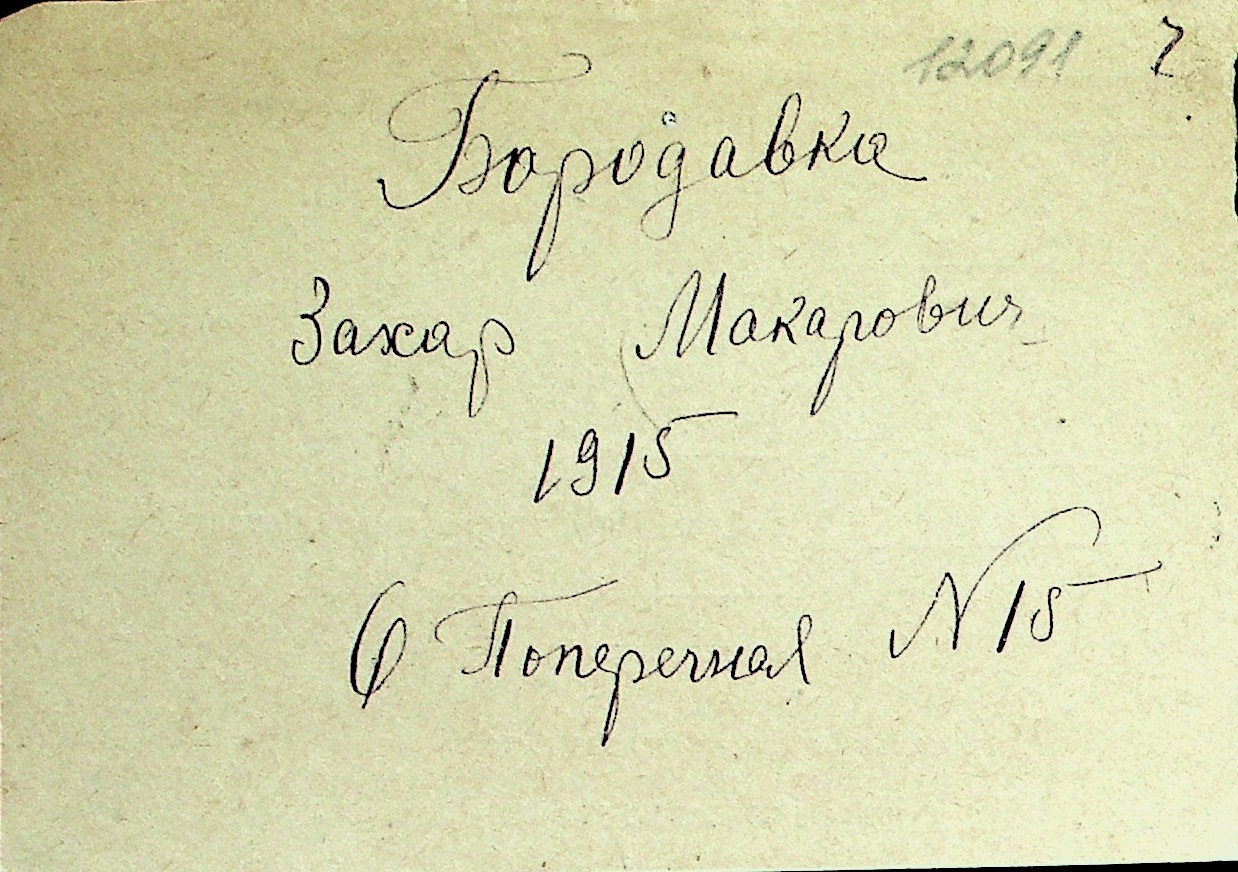 12091
Бородавка
Захар Макарович
1915
6 Поперечная N 15